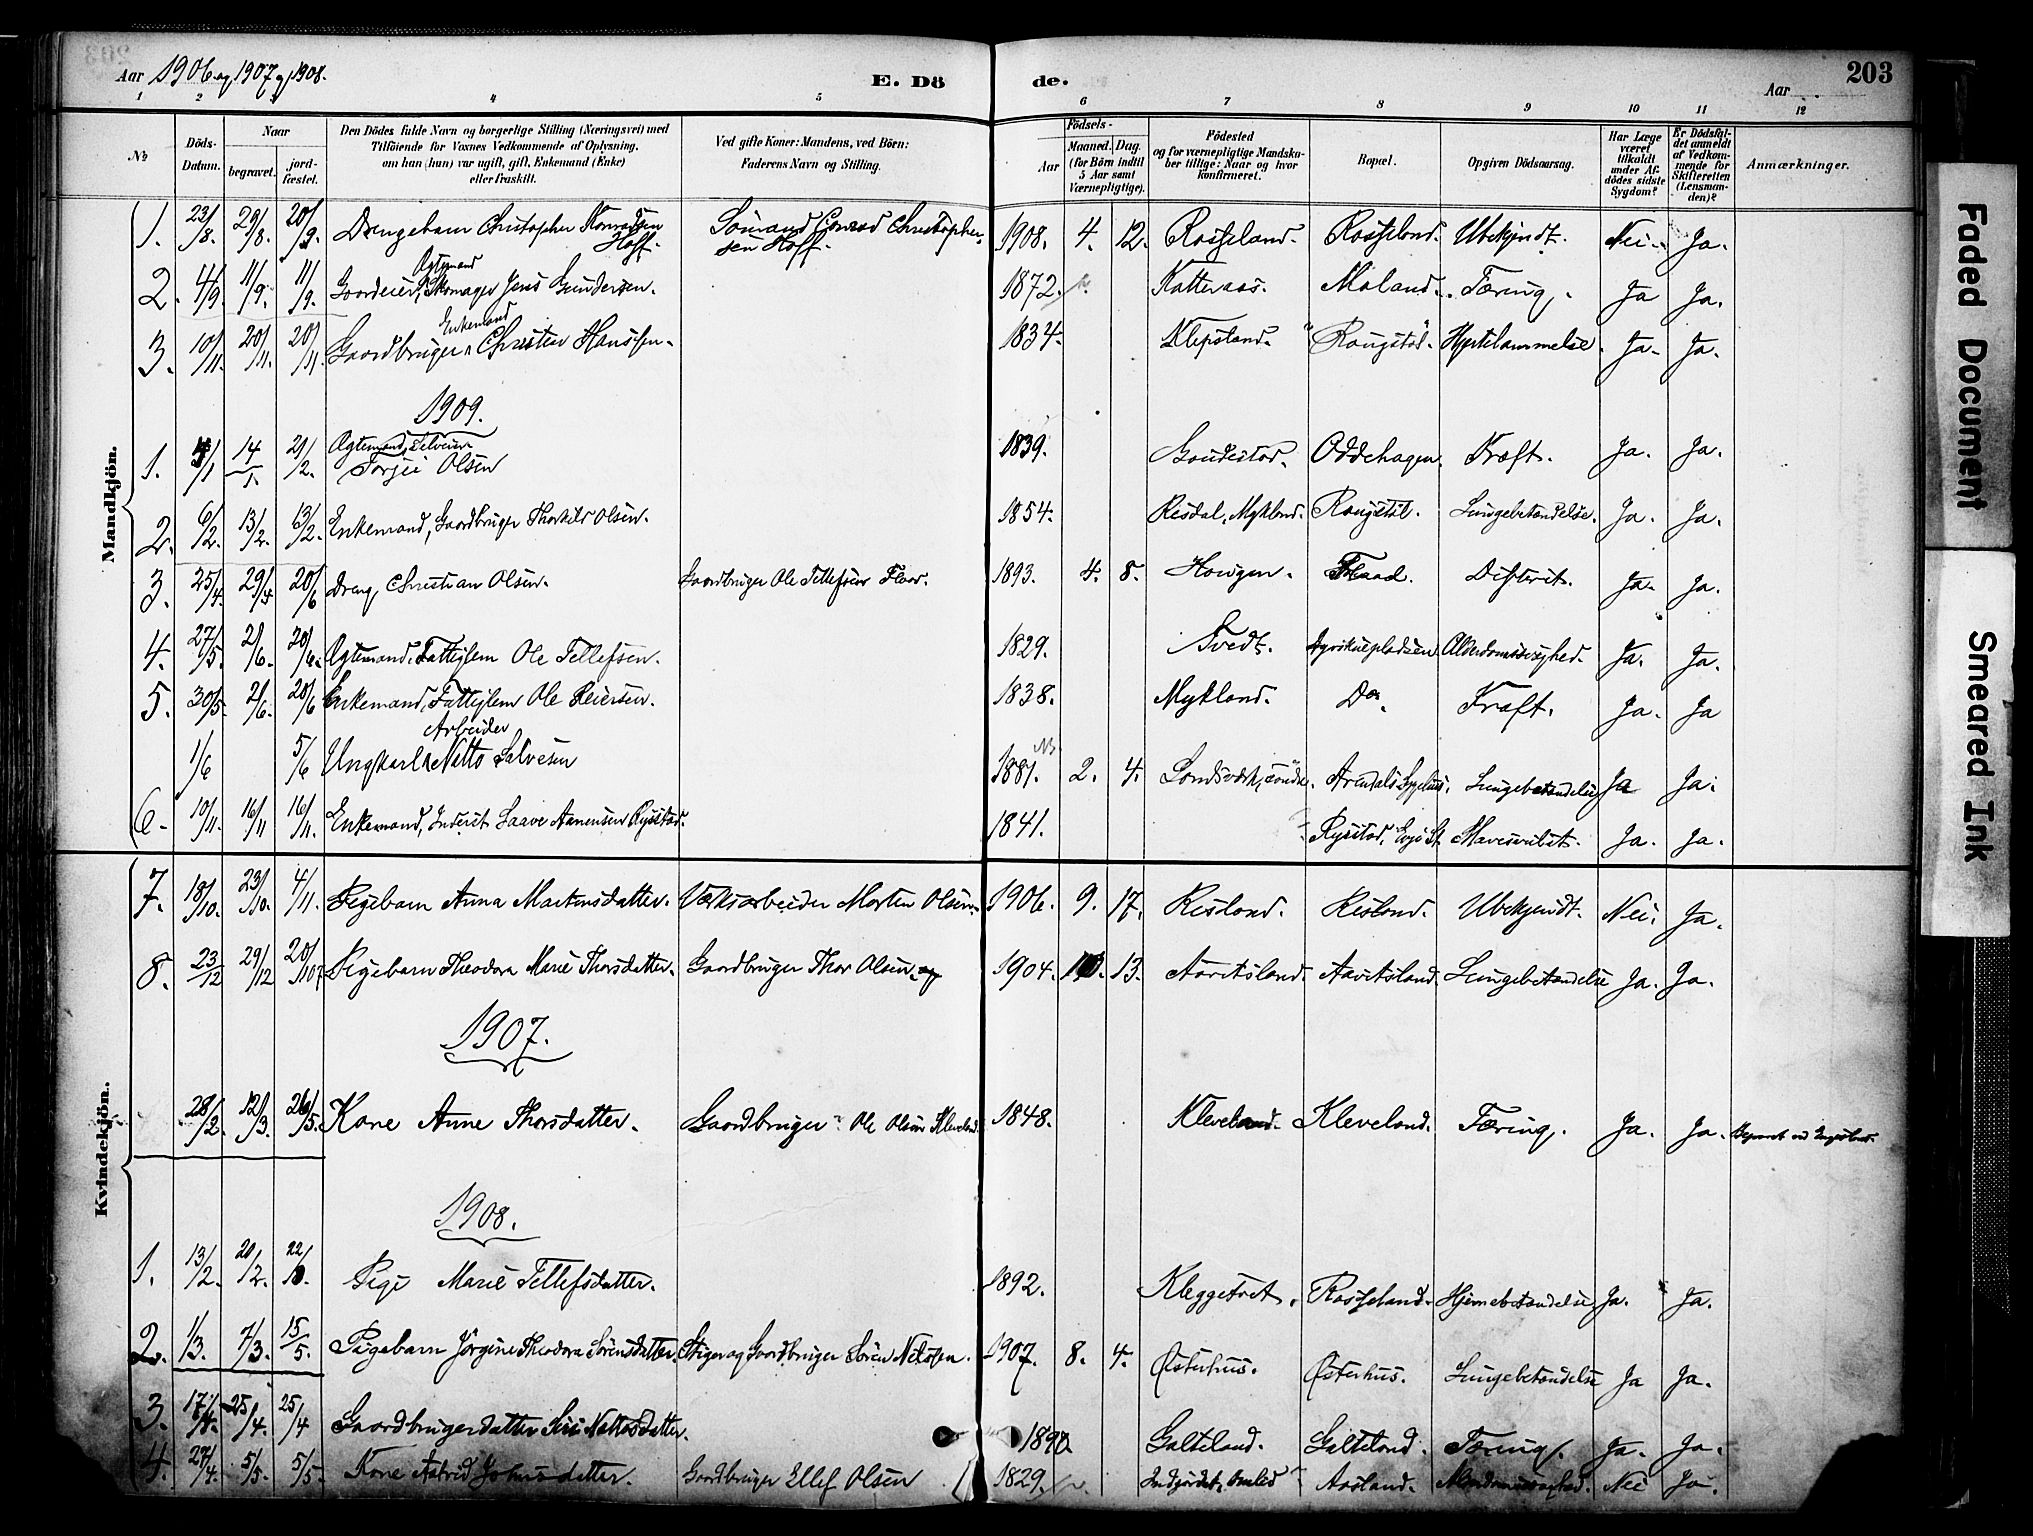 Aar 1906 og 1907 og 1908.
E. Dö
de.
Aar
203
1 2 3 4 5 6 7 8 9 10 11 12
No
Döds-Datum.
Naar
begravet.
jord-fæstet.
Den Dödes fulde Navn og borgerlige Stilling (Næringsvei) med
Tilföiende for Voxnes Vedkommende af Oplysning,
om han (hun) var ugift, gift, Enkemand (Enke)
eller fraskilt.
Ved gifte Koner: Mandens, ved Börn:
Faderens Navn og Stilling.
Födsels-
Aar
Maaned. Dag.
(for Börn indtil
5 Aar samt
Værnepligtige).
Födested
og for værnepligtige Mandska-
ber tillige: Naar og hvor
konfirmeret.
Bopæl.
Opgiven Dödsaarsag.
Har Læge
været
tilkaldt
under Af-
dödes sidste
Sygdom?
Er Dödsfal-
det anmeldt
af Vedkom-
mende for
Skifteretten
(Lensman-
den)?
Anmærkninger.
Mandkjön.
1. 23/8. 29/8. 20/9 Drengebarn Christopher Konradsen Hoff. Sömand Conrad Christophersen Hoff. 1908. 4. 12. Rosseland. Rosseland. Ubekjendt. Nei. Ja.
2. 4/9. 11/9. 11/9. Gaardeier, Skomager Ægtemand Jens Gundersen. 1872. Katteraas. Moland. Tæring. Ja Ja.
3. 10/11. 20/11. 20/11. Gaardbruger Enkemand Christen Hanssen. 1834. Klepsland. Rougstöl. Hjertelammelse. Ja. Ja.
1909.
1. /1 14/1. 21/2. Ægtemand, Selveier Torjei Olsen 1839. Oddehagen. Kræft. Ja. Ja.
2. 6/2. 13/2. 13/2. Enkemand, Gaardbruger Thorkild Olsen. 1854. Risdal, Mykland. Rougstöl. Lungebetændelse. Ja. Ja.
3. 25/4. 29/4 20/6 Dreng, Christian Olsen. Gaardbruger Ole Tellefsen 1893. 4. 8. Hougen. Difterit. Ja. Ja.
4. 27/5. 2/6. 20/6. Ægtemand, Fattiglem Ole Tellefsen. 1829. Tvedt. Alderdomssvaghed. Ja. Ja.
5. 30/5. 2/6. 20/6 Enkemand, Fattiglem Ole Reiersen. 1838. Mykland. Do. Kræft. Ja. Ja
1/6 5/6 Ungkarl Arbeider Natto Salvesen 1881. 2. 4. Arendals Sygehus. Lungebetændelse Ja Ja.
6. 10/11. 16/11 16/11. Enkemand, Inderst Aanensen Rysstad. 1841. Rysstad, Ja. Ja.
Kvindekjön.
7. 18/10. 23/10. 4/11. Pigebarn Anna Martensdatter. Værksarbeider Morten Olsen. 1906. 9. 17. Risland. Risland. Ubekjendt. Nei. Ja.
8. 23/12 29/12 20/1 07 Pigebarn Theodora Marie Thorsdatter. Gaardbruger Thor Olsen. 1904. 10. 13. Aavitsland. Aavitsland. Lungebetændelse Ja. Ja.
1907.
28/2. 12/3. 26/5. Kone Anne Thorsdatter. Gaardbruger Ole Olsen Kleveland 1848. Kleveland. Kleveland. Tæring. Ja. Ja.
1908.
1. 13/2. 20/2. 22/ Pige Marie Tellefsdatter. 1892. Kleggetvet. Rosseland. Hjernebetændelse Ja. Ja.
2. 1/3. 7/3. 15/5. Pigebarn Jörgine Theodora Sörensdatter. Stiger og Gaardbruger Sören Nilssen. 1907. 8. 4. Østerhus. Østerhus. Lungebetændelse Ja Ja.
3. 17/4. 25/4. 25/4 Gaardbrugerdatter Siri Nattosdatter. 1890 Galteland. Galteland. Tæring. Ja. Ja.
4. 27/4. 5/5. 5/5. Kone Astrid Johnsdatter. Gaardbruger Ellef Olsen 1829. Aasland. Alderdomssvaghed. Nei Ja.
Faded Document
Smeared Ink